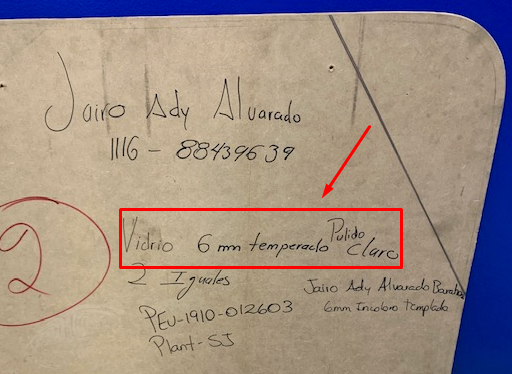 Jairo Ady Alvarado
1116 - 88439639
Vidrio 6 mm temperado Pulido Claro
2
2 Iguales
Jairo Ady Alvarado
6mm Incoloro Templado
PEU-1910-012603
Plant-SJ